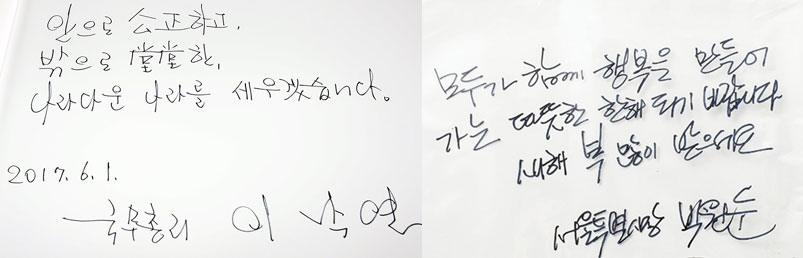 안으로 公正하고,
밖으로 堂堂한,
나라다운 나라를 세우겠습니다。
2017. 6. 1.
국무총리 이낙연
모두가 함께 행복을 만들어
가는 따뜻한 한해 되기 바랍니다
새해 복 많이 받으세요
서울특별시장 박원순